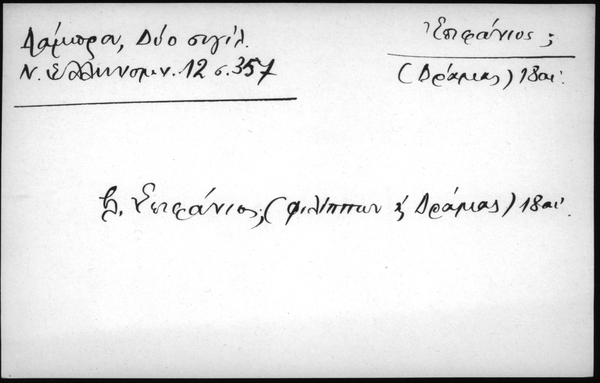 Λάμπρου, Δύο σιγίλ.
Ν. Ελληνομν. 12 σ. 357
Ἐπιφάνιος;
(Δράμας) 18 αἰ.
β. Ἐπιφάνιος; (Φιλίππων ϗ Δράμας) 18 αἰ.